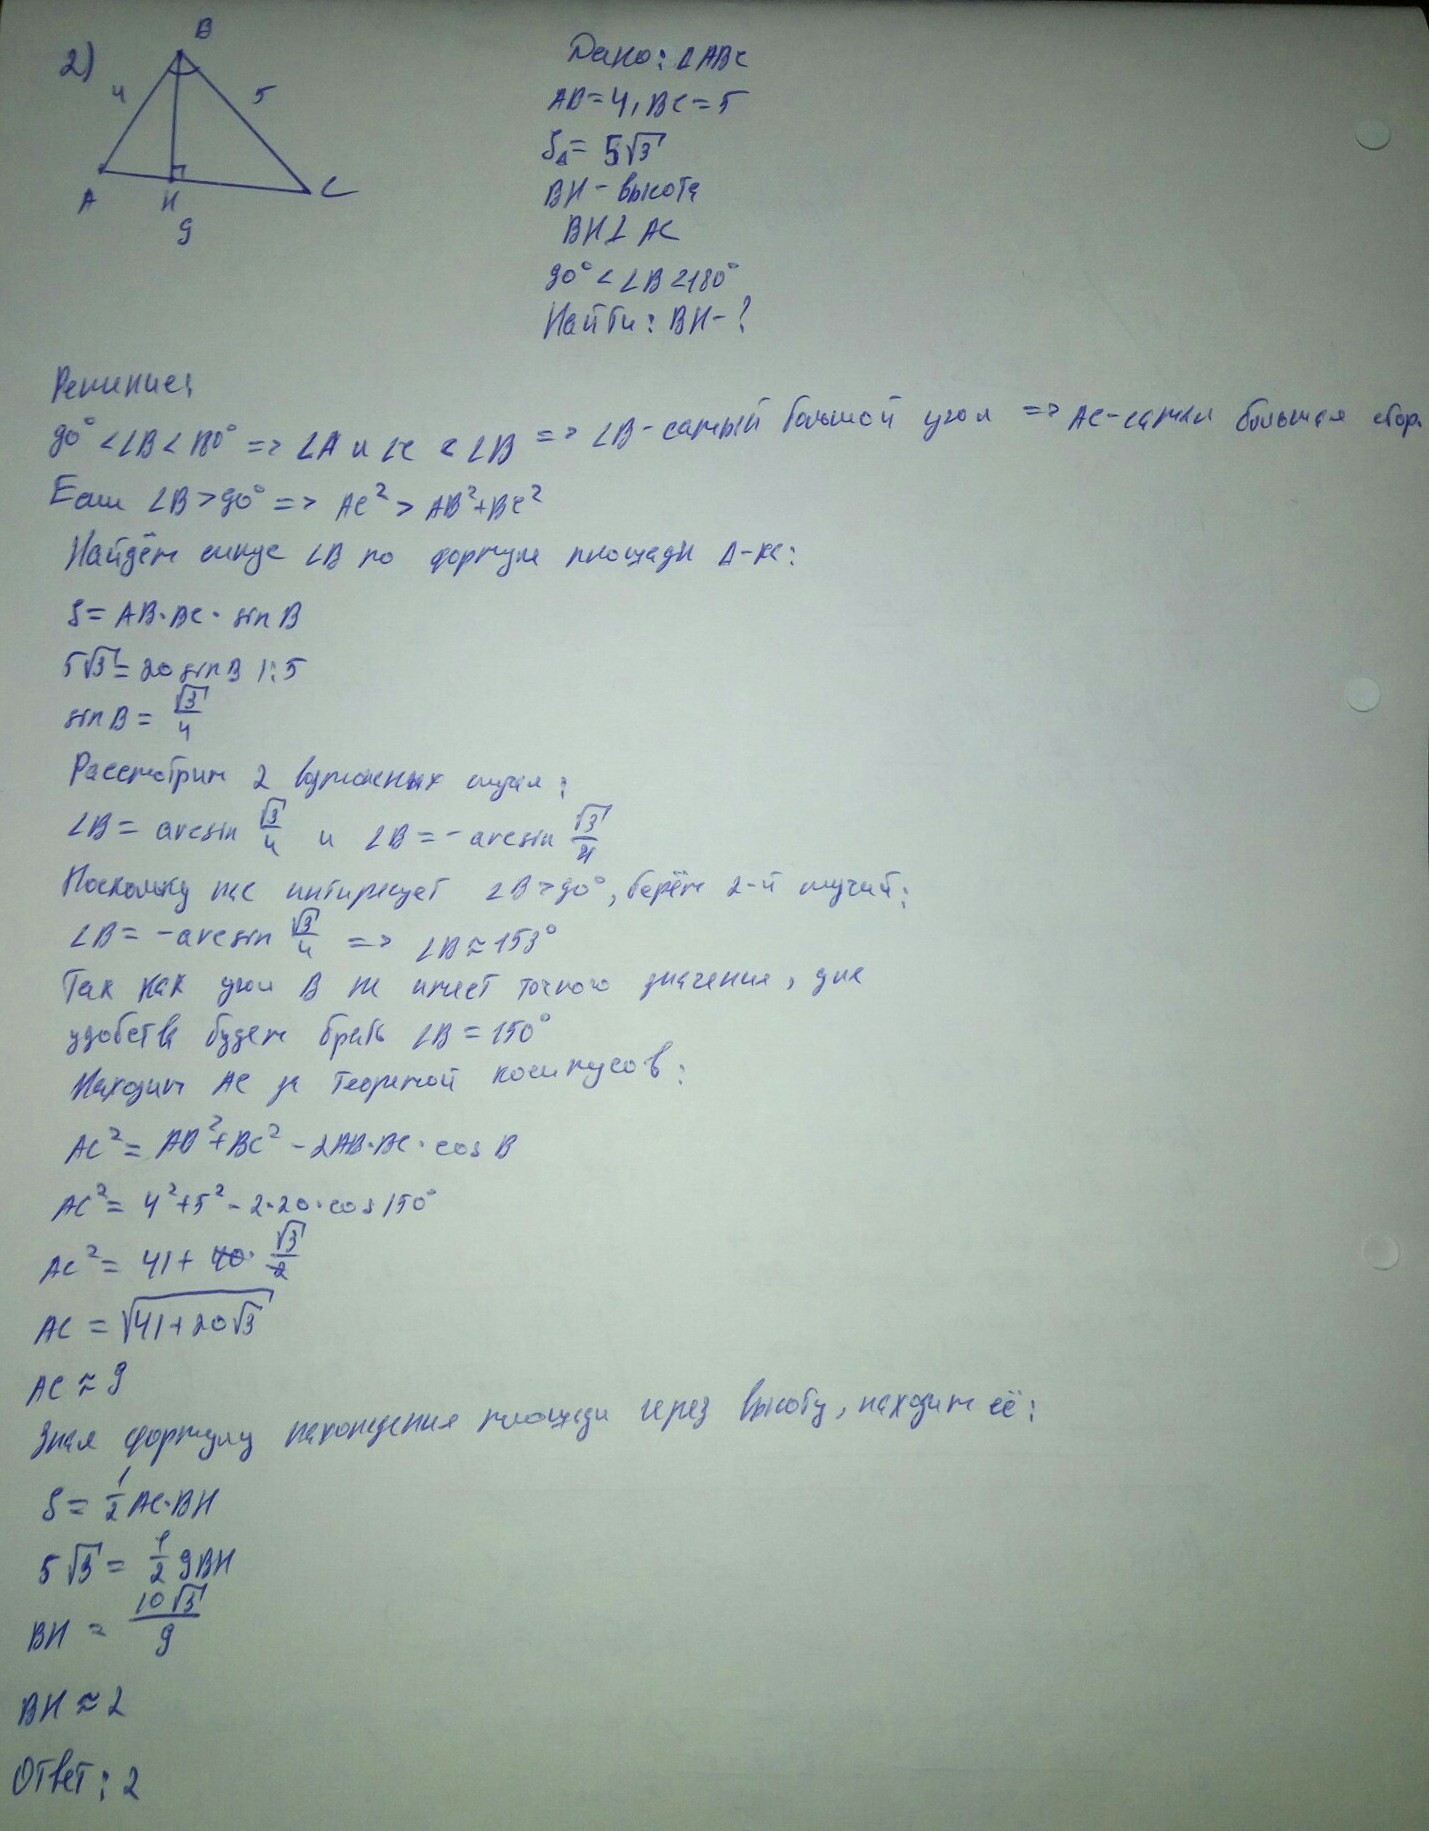 2)
B
4
5
A
H
C
9
Дано: ΔABC
AB=4, BC=5
SΔ= 5√3
BH - высота
BH⊥AC
90°<∠B<180°
Найти: BH-?
Решение:
90°<∠B<180° => ∠A и ∠C < ∠B => ∠B-самый большой угол => AC-самая большая стор.
Если ∠B>90° => AC²>AB²+BC²
Найдём синус ∠B по формуле площади Δ-ка:
S=AB·BC·sinB
5√3=20sinB |:5
sinB= √3/4
Рассмотрим 2 возможных случая:
∠B= arcsin √3/4 и ∠B=-arcsin √3/4
Поскольку нас интересует ∠B>90°, берём 2-й случай:
∠B= -arcsin √3/4 => ∠B≈153°
Так как угол B не имеет точного значения, для
удобства будем брать ∠B=150°
Находим AC за теоремой косинусов:
AC²= AB²+BC²-2AB·BC·cosB
AC²= 4²+5²-2·20·cos150°
AC²= 41+40·√3/2
AC=√(41+20√3)
AC≈9
Зная формулу нахождения площади через высоту, находим её:
S= 1/2 AC·BH
5√3= 1/2 9BH
BH= 10√3/9
BH≈2
Ответ: 2